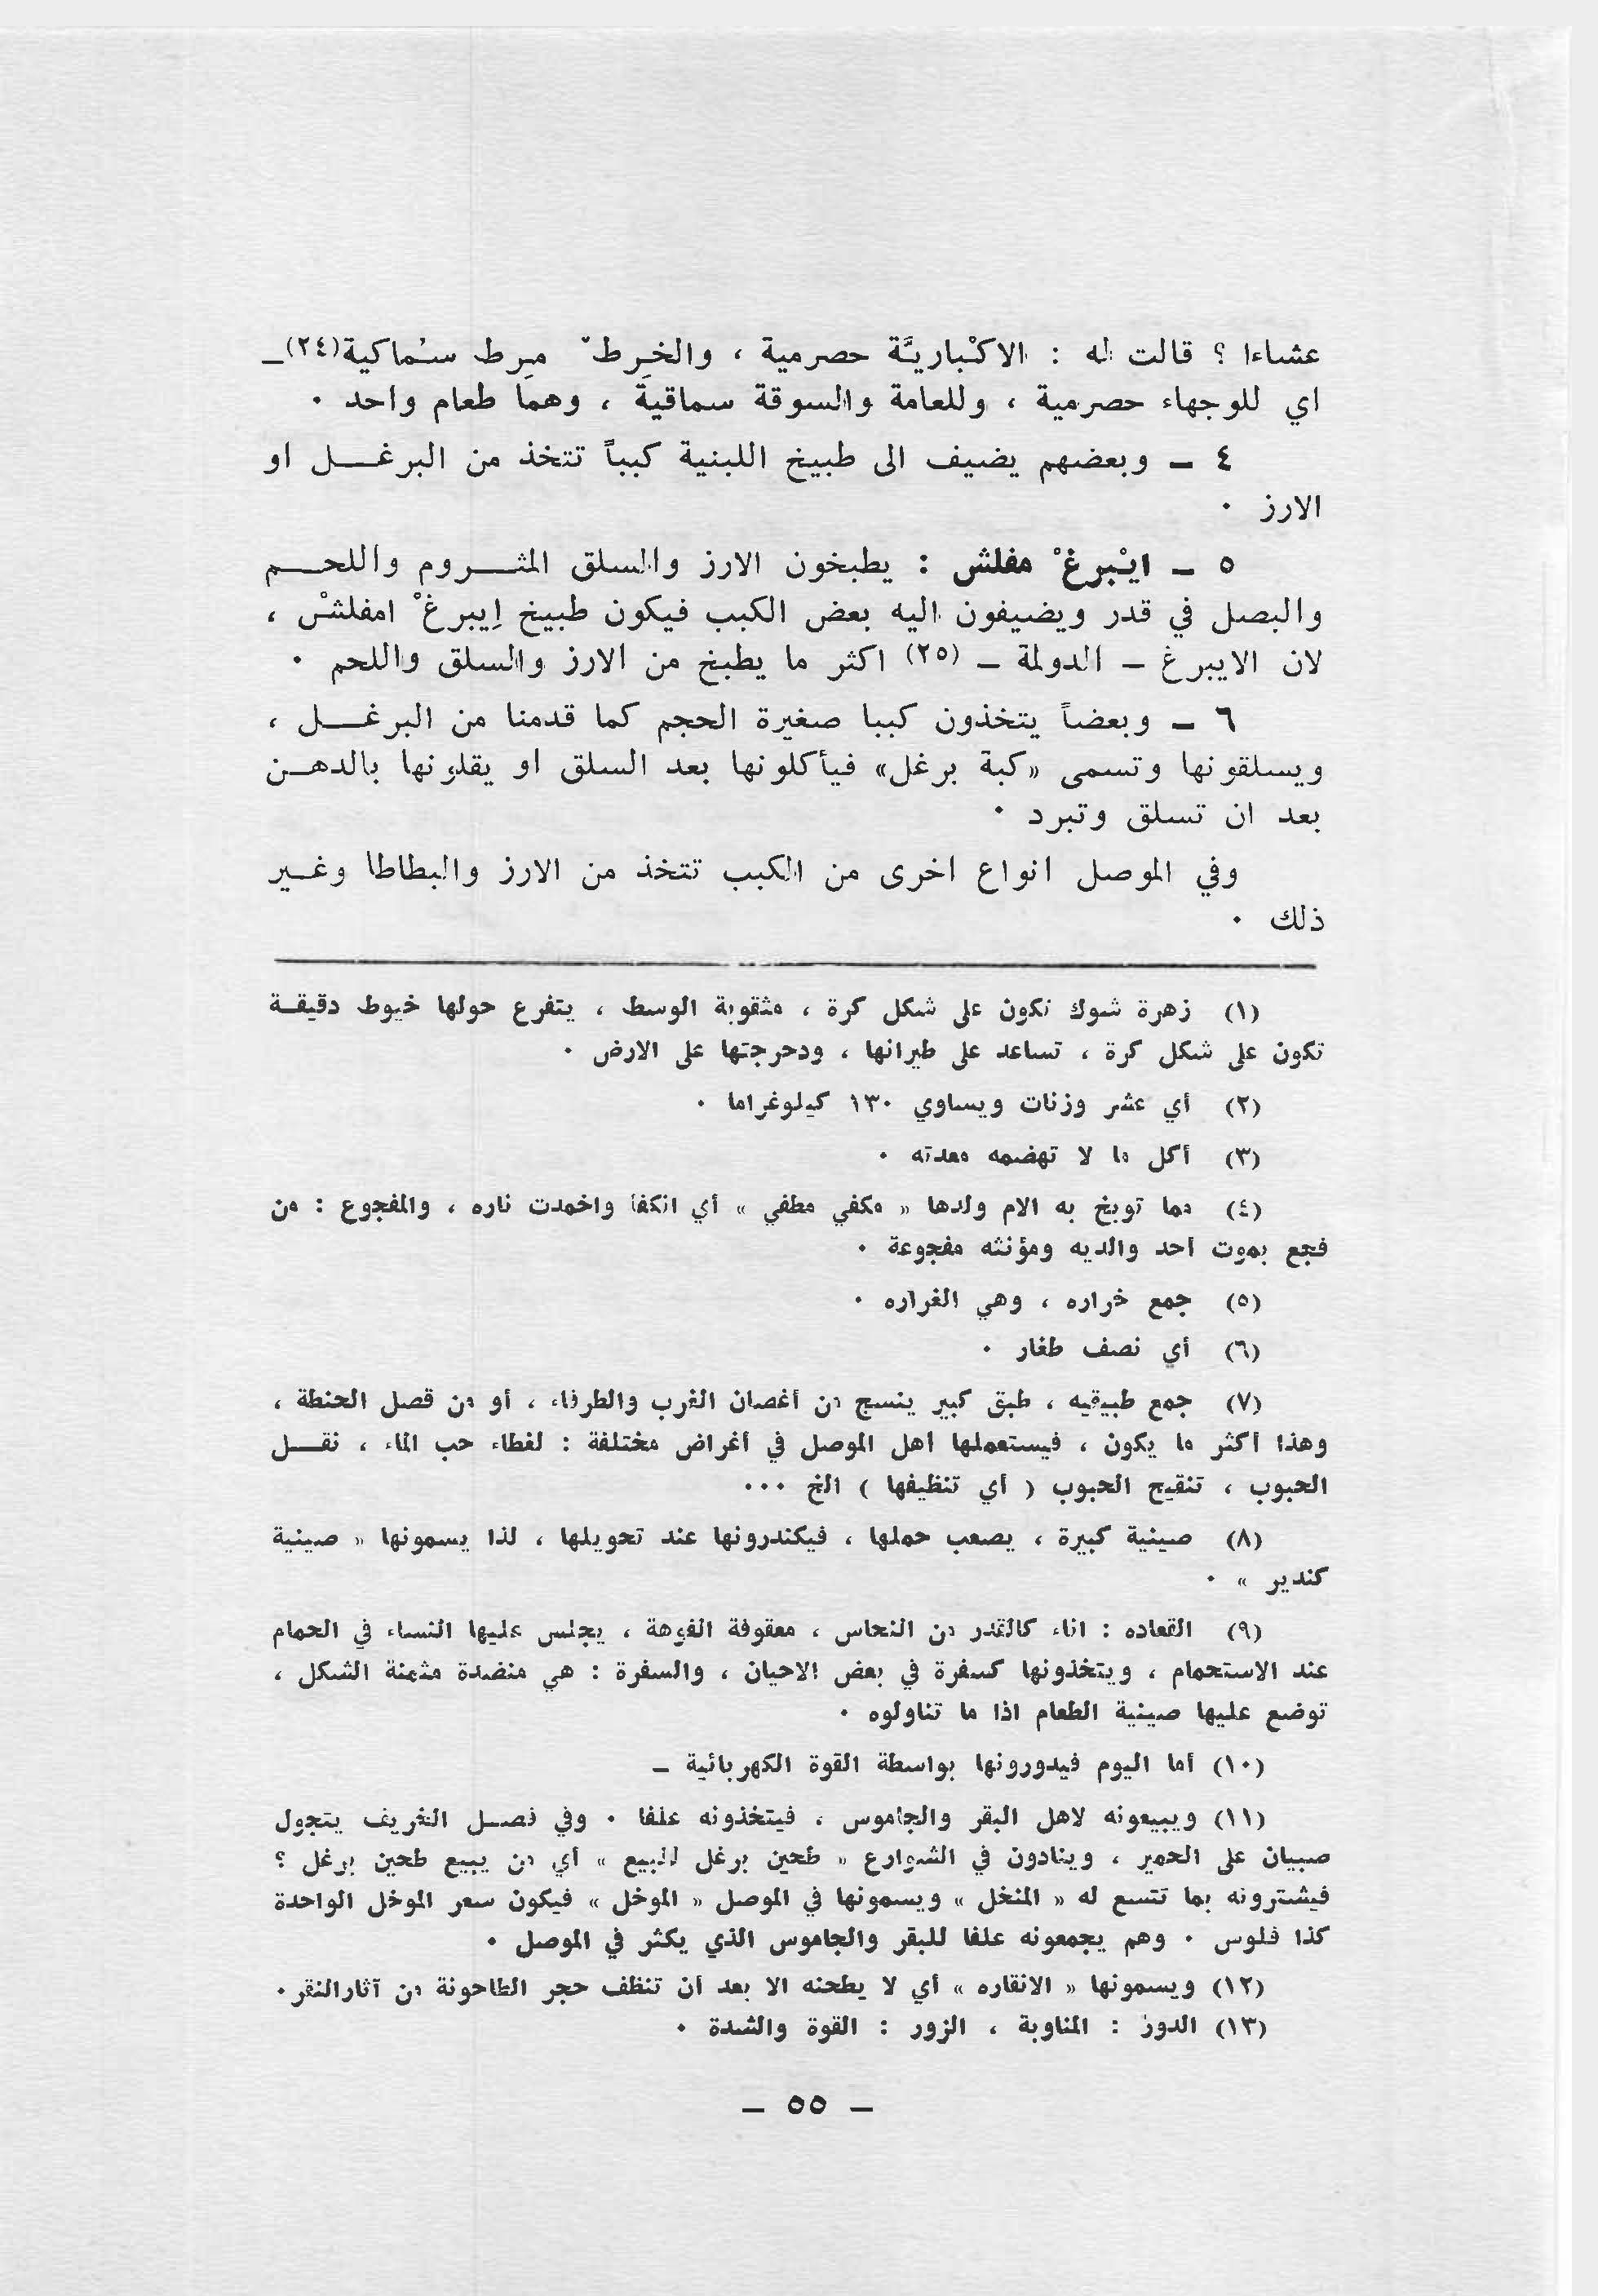 عشاءا ؟ قالت له : الاكْباريَّة حصرمية ، والخِرِط ْ مِرِط سُماكية(٢٤)ــ
اي للوجهاء حصرمية ، وللعامة والسوقة سماقية ، وهما طعام واحد ٠
٤ ــ وبعضهم يضيف الى طبيخ اللبنية كبباً تتخذ من البرغـــل او
الارز ٠
٥ ــ ايْبرغْ مفلش : يطبخون الارز والسلق المثـــروم واللحـــم
والبصل في قدر ويضيفون اليه بعض الكبب فيكون طبيخ اِيبرغْ امفلشْ ،
لان الايبرغ – الدولمة – (٢٥) اكثر ما يطبخ من الارز والسلق واللحم ٠
٦ ــ وبعضاً يتخذون كببا صغيرة الحجم كما قدمنا من البرغـــل ،
ويسلقونها وتسمى «كبة برغل» فيأكلونها بعد السلق او يقلونها بالدهــن
بعد ان تسلق وتبرد ٠
وفي الموصل انواع اخرى من الكبب تتخذ من الارز والبطاطا وغــير
ذلك ٠
(١) زهرة شوك تكون على شكل كرة ، مثقوبة الوسط ، يتفرع حولها خيوط دقيقــة
تكون على شكل كرة ، تساعد على طيرانها ، ودحرجتها على الارض ٠
(٢) أي عشر وزنات ويساوي ١٣٠ كيلوغراما ٠
(٣) أكل ما لا تهضمه معدته ٠
(٤) مما توبخ به الام ولدها « مكفي مطفي » أي انكفأ واخمدت ناره ، والمفجوع : من
فجع بموت أحد والديه ومؤنثه مفجوعة ٠
(٥) جمع خراره ، وهي الغراره ٠
(٦) أي نصف طغار ٠
(٧) جمع طبيقيه ، طبق كبير ينسج من أغصان الغرب والطرفاء ، أو من قصل الحنطة ،
وهذا أكثر ما يكون ، فيستعملها أهل الموصل في أغراض مختلفة : لغطاء حب الماء ، نقـــل
الحبوب ، تنقيح الحبوب ( أي تنظيفها ) الخ ٠٠٠
(٨) صينية كبيرة ، يصعب حملها ، فيكندرونها عند تحويلها ، لذا يسمونها « صينية
كندير » ٠
(٩) القعاده : اناء كالقدر من النحاس ، معقوفة الفوهة ، يجلس عليها النساء في الحمام
عند الاستحمام ، ويتخذونها كسفرة في بعض الاحيان ، والسفرة : هي منضدة مثمنة الشكل ،
توضع عليها صينية الطعام اذا ما تناولوه ٠
(١٠) أما اليوم فيدورونها بواسطة القوة الكهربائية ــ
(١١) ويبيعونه لاهل البقر والجاموس ، فيتخذونه علفا ٠ وفي فصــل الخريف يتجول
صبيان على الحمير ، وينادون في الشوارع « طحين برغل للبيع » أي من يبيع طحين برغل ؟
فيشترونه بما تتسع له « المنخل » ويسمونها في الموصل « الموخل » فيكون سعر الموخل الواحدة
كذا فلوس ٠ وهم يجمعونه علفا للبقر والجاموس الذي يكثر في الموصل ٠
(١٢) ويسمونها « الانقاره » أي لا يطحنه الا بعد أن تنظف حجر الطاحونة من آثارالنقر٠
(١٣) الدور : المناوبة ، الزور : القوة والشدة ٠
ــ ٥٥ ــ